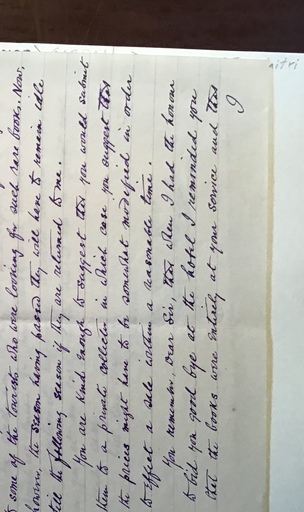 to some of the tourists who were looking for such rare books. Now,
however, the season having passed they will have to remain idle
till the following season if they are returned to me.
You are kind enough to suggest that you would submit
them to a private collector in which case you suggest that
the prices might have to be somewhat modefied in order
to effect a sale within a reasonable time.
You remember, Dear Sir, that when I had the honour
to bid you good bye at the hotel I reminded you
that the books were entirely at your service and that
I